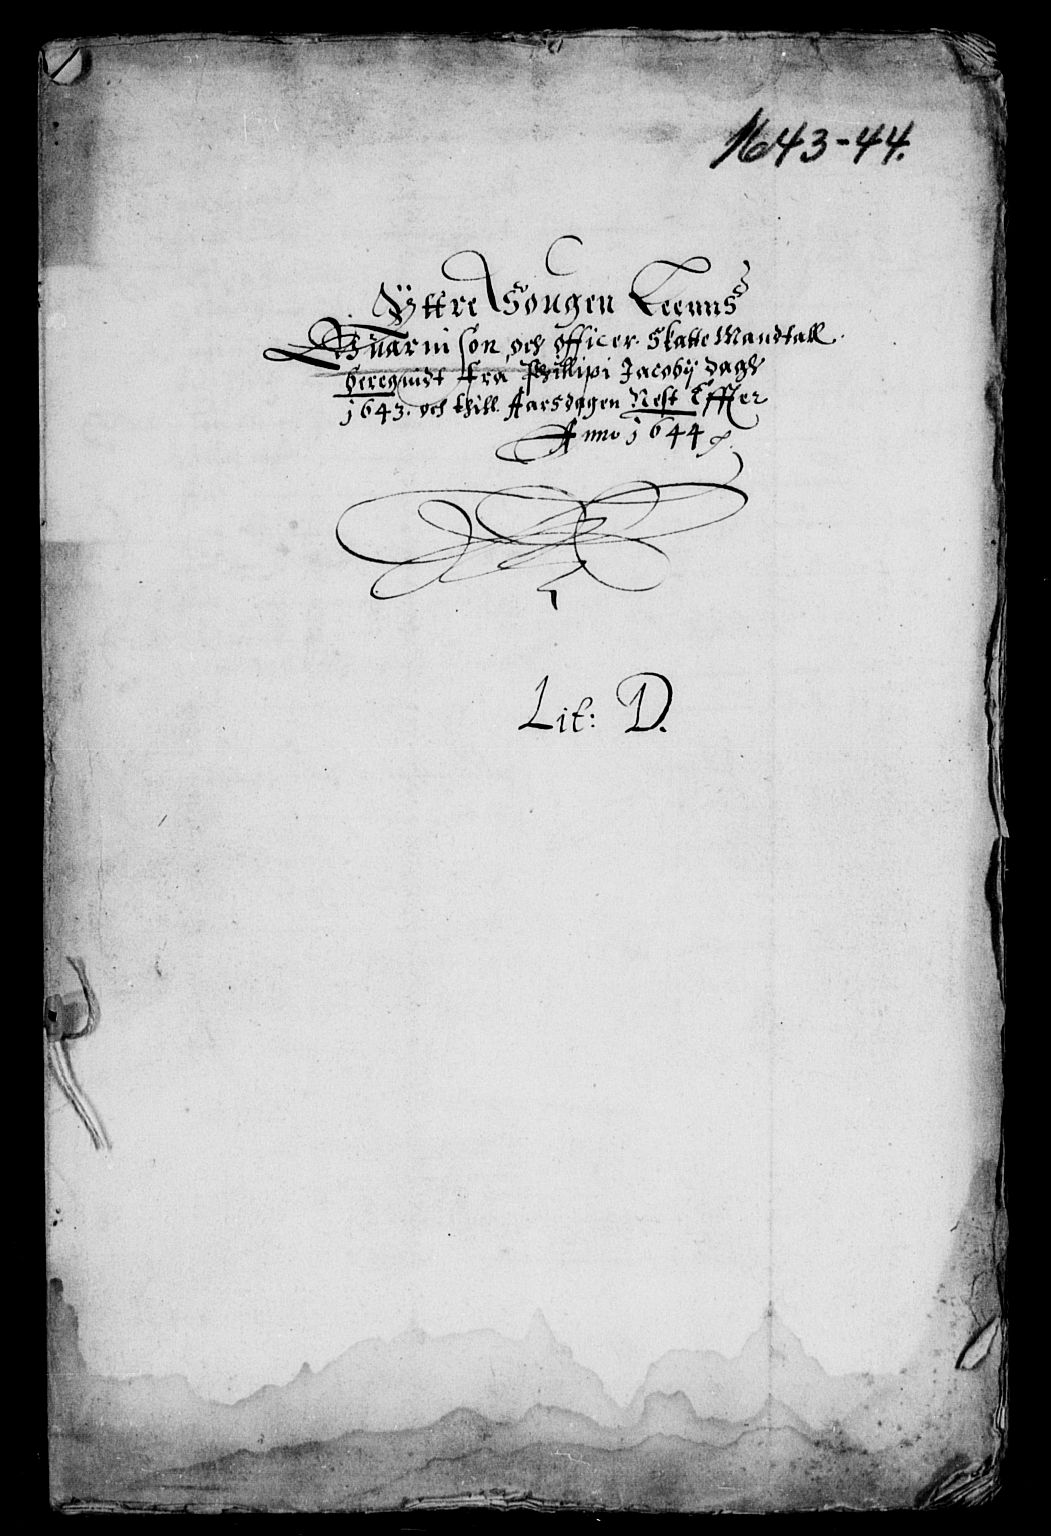 1643-44.
Yttre Sougen Leenns
Guarnison, och officer. Skatte Mandtall.
beregnidt fra Phillipi Jacobÿ dagh
1643. och thill Aarsdagen Nest Effter
Anno 1644
Lit: D.